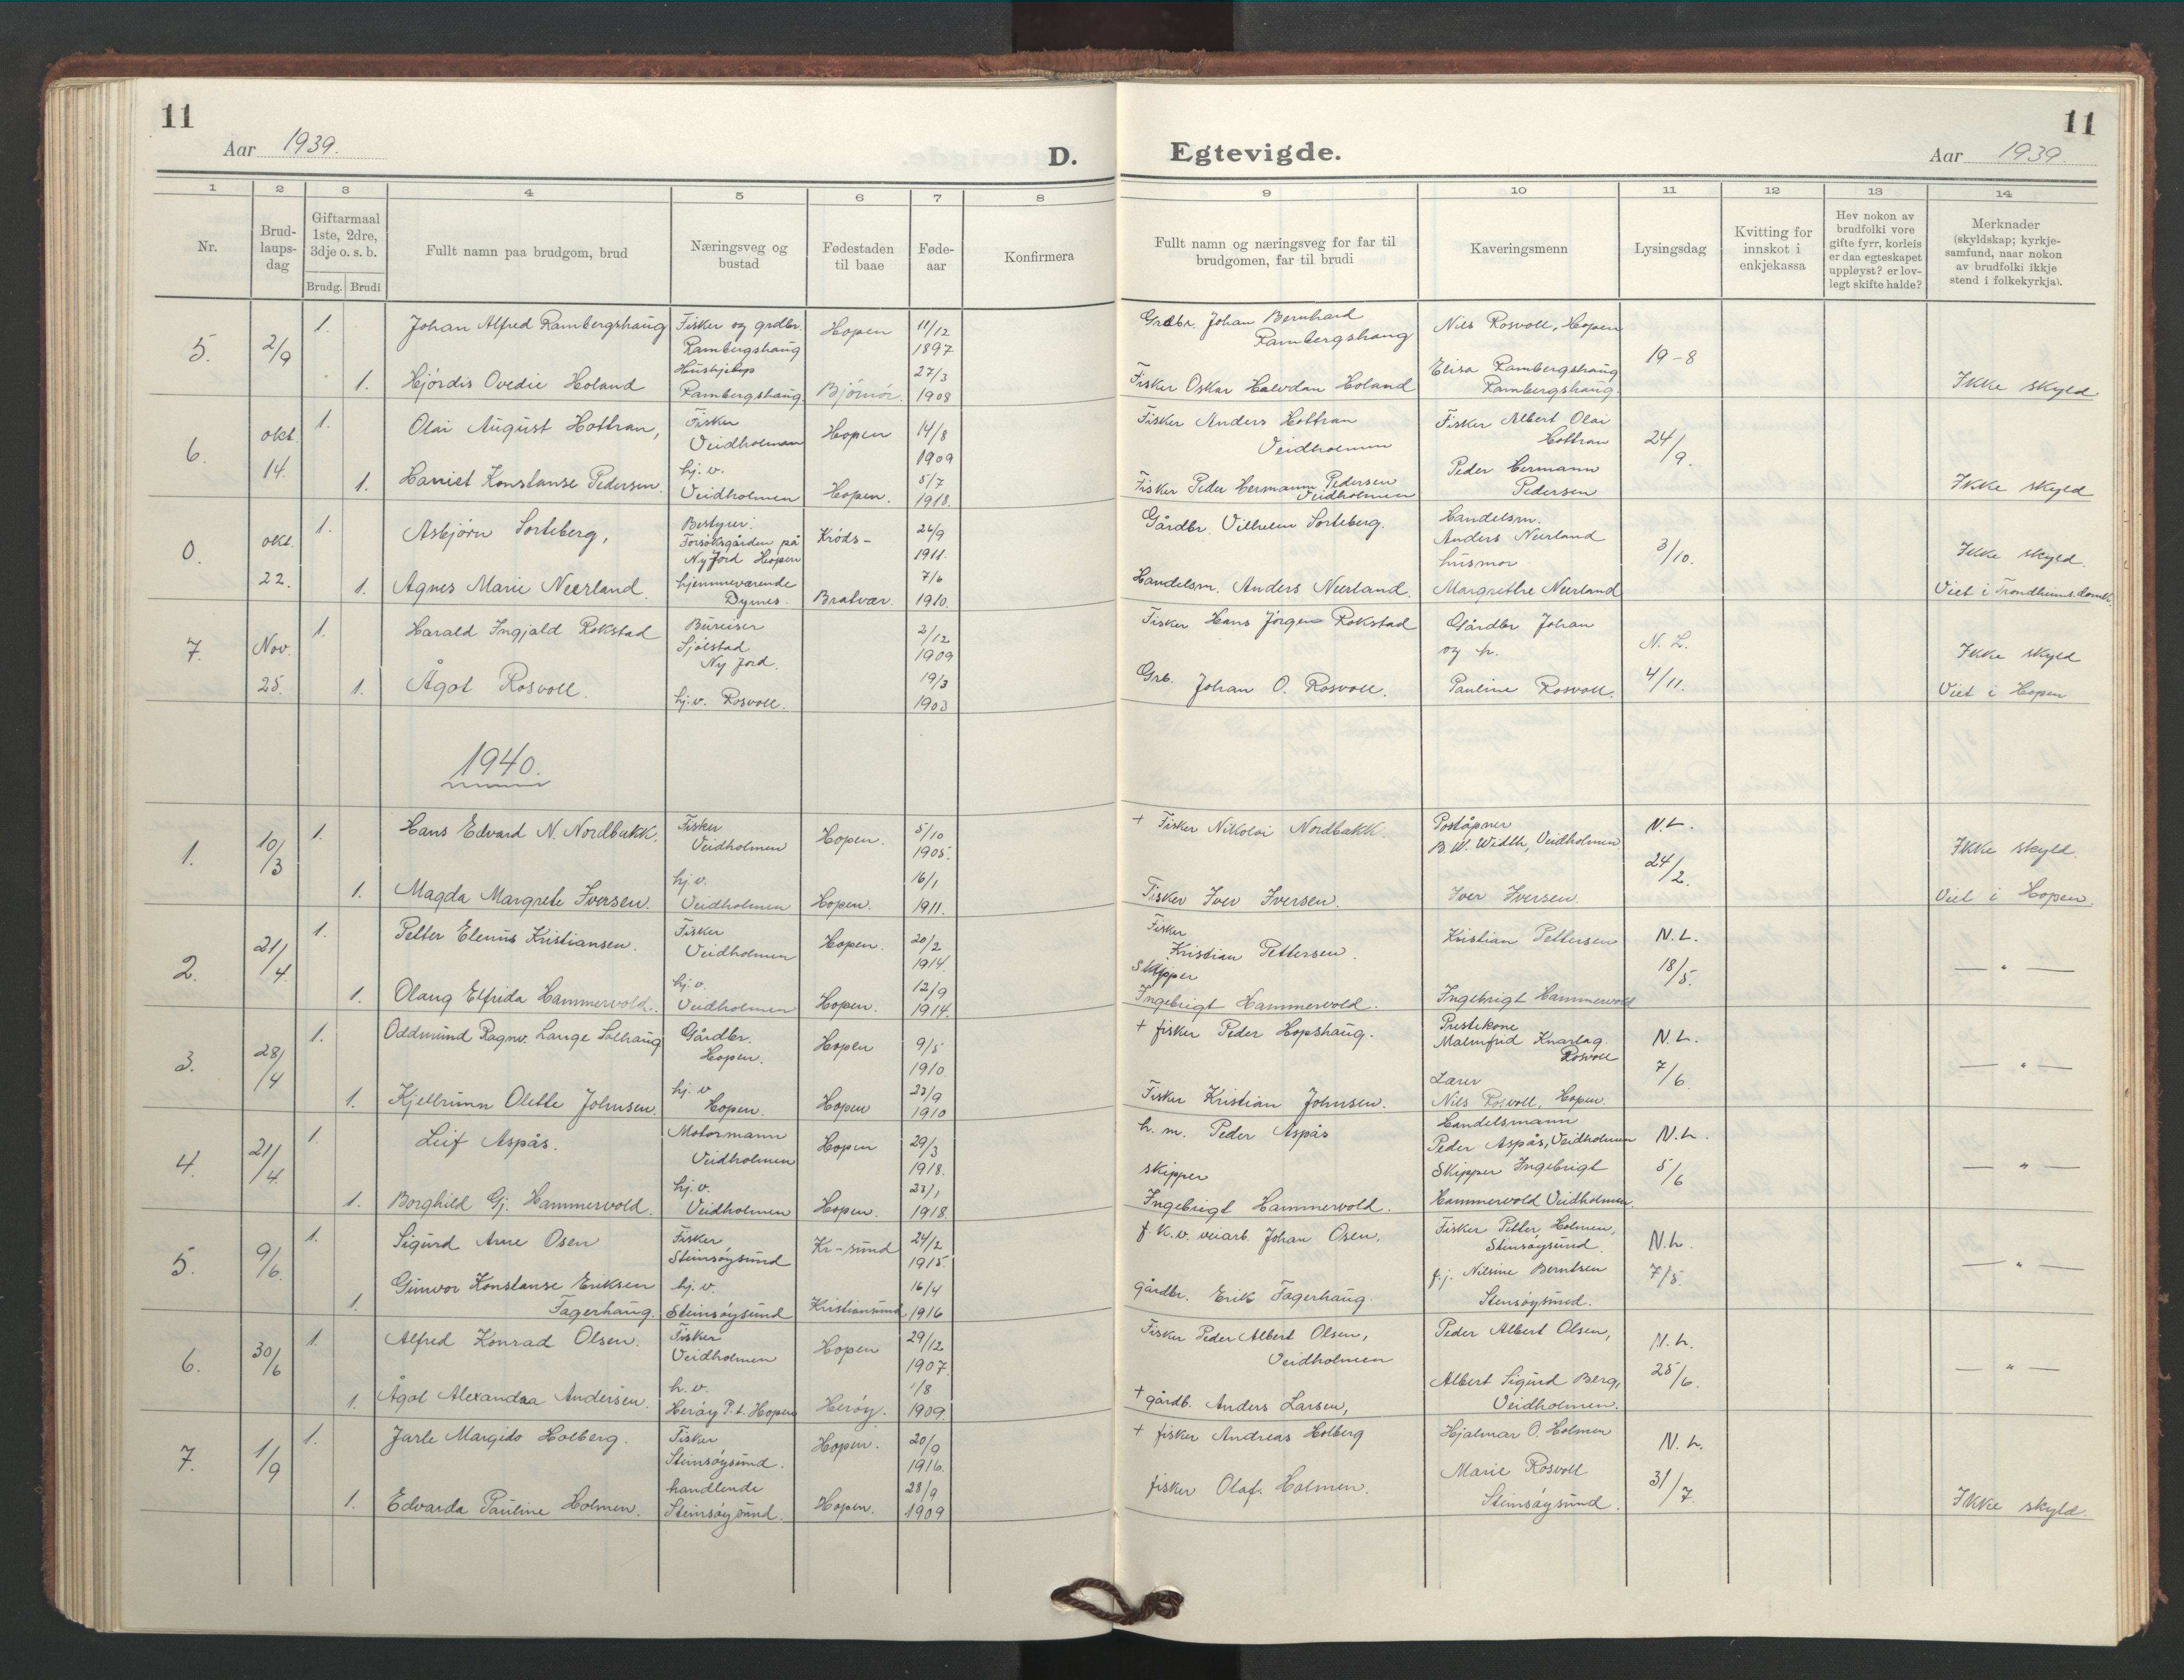 11
Aar 1939.
D.
1 2 3 4 5 6 7 8
Nr.
Brud-
laups-
dag
Giftarmaal
1ste, 2dre,
3dje o. s. b.
Brudg. Brudi
Fullt namn paa brudgom, brud
Næringsveg og
bustad
Fødestaden
til baae
Føde-
aar
Konfirmera
5. 2/9
1. Johan Alfred Rambergshaug Fisker og grdbr. Rambergshaug Hopen 11/12 1897
1. Hjördis Ovedie Holand Hushjelp Rambergshaug. Björnör. 27/3 1908
6. okt. 14.
1. Olai August Hottran, Fisker Veidholmen Hopen 14/8 1909
1. Harriet Konstanse Pedersen. hj. v. Veidholmen Hopen. 5/7 1918.
0. okt. 22.
1. Asbjörn Sorteberg, Bestyrer: Forsöksgården på Ny Jord Hopen Kröds- 26/9 1911.
1. Agnes Marie Neerland. hjemmeværende Dyrnes. Bratvær. 7/6 1910.
7. Nov. 25.
1. Harald Ingjald Rokstad Bureiser Sjölstad Ny Jord. 2/12 1909
1. Ågot Rosvoll. hj. v. Rosvoll. 19/3 1903
1940.
1. 10/3
1. Hans Edvard N. Nordbakk. Fisker Veidholmen Hopen. 5/10 1905.
1. Magda Margrete Iversen. hj. v. Veidholmen Hopen. 16/1 1911.
2. 21/4
1. Petter Elenus Kristiansen. Fisker Veidholmen Hopen. 20/2 1914.
1. Olaug Elfrida Hammervold. hj. v. Veidholmen Hopen. 12/9 1914.
3. 28/4
1. Oddmund Ragnv. Lange Solhaug Gårdbr. Hopen. Hopen 9/5 1910
1. Kjellrunn Olette Johnsen. hj. v Hopen. Hopen 23/9 1910
4. 21/4
1. Leif Aspås. Motormann Veidholmen Hopen 29/3 1918.
1. Borghild Gj. Hammervold. hj. v. Veidholmen Hopen. 23/1 1918.
5. 9/6.
1. Sigurd Arne Osen Fisker Steinsöysund Kr-sund 24/2 1915.
1. Gunvor Konstanse Eriksen Fagerhaug. hj. v. Steinsöysund Kristiansund 16/4 1916
6. 30/6
1. Alfred Konrad Olsen. Fisker Veidholmen Hopen 29/12 1907.
1. Ågot Alexandra Andersen. h. v. Heröy P. t. Hopen Heröy. 1/8 1909.
7. 1/9
1. Jarle Margido Holberg. Fisker Steinsöysund. Hopen. 20/9 1916.
1. Edvarda Pauline Holmen. handlende Steinsöysund. Hopen. 28/9 1909
11
Egtevigde.
Aar 1939.
9 10 11 12 13 14
Fullt namn og næringsveg for far til
brudgomen, far til brudi
Kaveringsmenn
Lysingsdag
Kvitting for
innskot i
enkjekassa
Hev nokon av
brudfolki vore
gifte fyrr, korleis
er daa egteskapet
uppløyst? er lov-
legt skifte halde?
Merknader
(skyldskap; kyrkje-
samfund, naar nokon
av brudfolki ikkje
stend i folkekyrkja).
Grdbr. Johan Bernhard Rambergshaug Nils Rosvoll, Hopen
19-8
Fisker Oskar Halvdan Holand Elisa Rambergshaug Rambergshaug. Ikke skyld
Fisker Anders Hottran Veidholmen Fisker Albert Olai Hottran 24/9.
Fisker Peder Hermann Pedersen Veidholmen Peder Hermann Pedersen Ikke skyld
Gårdbr. Vilhelm Sorteberg. Handelsm. Anders Neerland 3/10. Ikke skyld.
Handelsm. Anders Neerland. husmor Margrethe Neerland Viet i Trondheims domk.
Fisker Hans Jörgen Rokstad Gårdbr Johan og h. N. L. Ikke skyld
Grb. Johan O. Rosvoll. Pauline Rosvoll. 4/11. Viet i Hopen
+ Fisker Nikolai Nordbakk. Poståpner B. W. Width, Veidholmen N.L. Ikke skyld.
24/2.
Fisker Iver Iversen. Iver Iversen. Viet i Hopen.
Fisker Kristian Pettersen. Kristian Pettersen N.L.
Skipper Ingebrigt Hammervold. Ingebrigt Hammervold 18/5. — " —
+ fisker Peder Hopshaug. Prestekone Malmfrid Knarlag. Rosvoll N.L.
Fisker Kristian Johnsen. Lærer Nils Rosvoll, Hopen. 7/6. — " —
h. m. Peder Aspås Handelsmann Peder Aspås, Veidholmen N.L.
skipper Ingebrigt Hammervold. Skipper Ingebrigt Hammervold Veidholmen. 5/6 — " —
f. k. v. veiarb. Johan Osen. Fisker Petter Holmen, Steinsöysund. N.L.
gårdbr. Erik Fagerhaug. f. j. Nilsine Berntsen Steinsöysund. 7/5. — " —
Fisker Peder Albert Olsen, Veidholmen Peder Albert Olsen, N.L.
+ gårdb. Anders Larsen, Albert Sigurd Berg, Veidholmen. 25/6. — " —
+ fisker Andreas Holberg Hjalmar O. Holmen N.L.
fisker Olaf. Holmen. Marie Rosvoll Steinsöysund. 31/7. Ikke skyld.